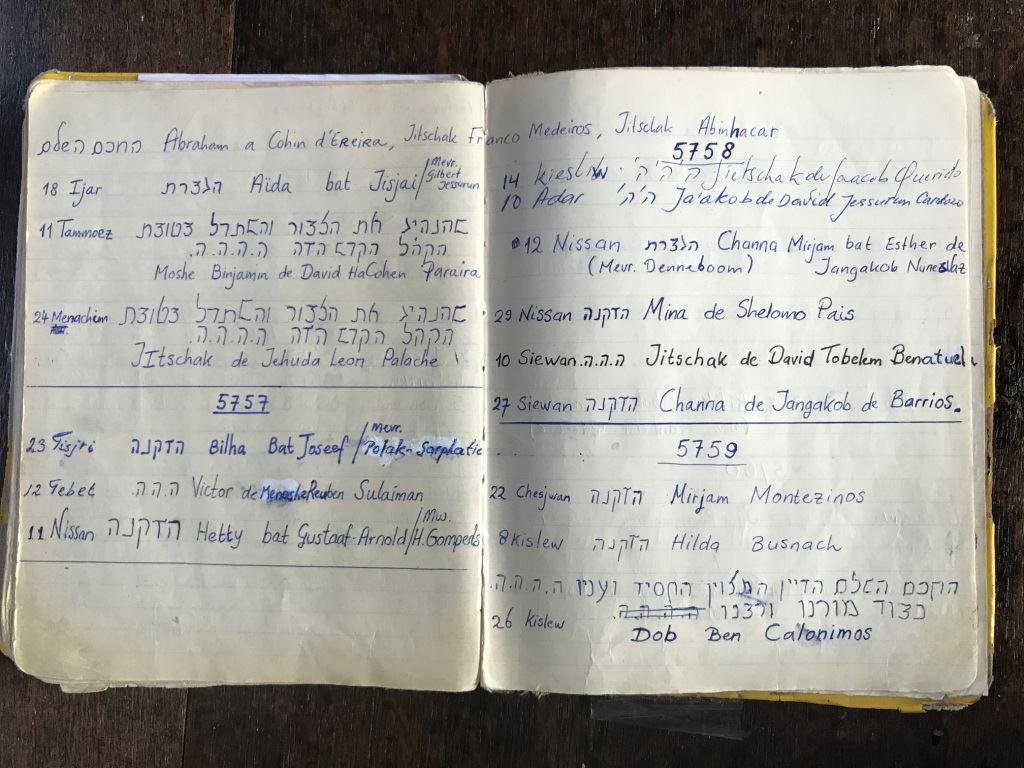 החכם השלם Abraham a Cohin d'Ereira, Jitschak Franco Medeiros, Jitschak Abinhacar
18 Ijar הגברת Aïda bat Jisjai / Mevr. Gilbert Jessurun
11 Tammoez שהנהיג את הצבור והשתדל בטובת
הקהל הקדש הזה ה.ה.ה.ה.
Moshe Binjamin de David HaCohen Paraira
24 Menachim שהנהיג את הצבור והשתדל בטובת
הקהל הקדש הזה ה.ה.ה.ה.
Jitschak de Jehuda Leon Palache
5757
23 Tisjri הזקנה Bilha Bat Joseef / mevr. Polak-Sarphatie
12 Tebet ה.ה.ה. Victor de Menashe Reuben Sulaiman
11 Nissan הזקנה Hetty bat Gustaaf-Arnold / Mw. H. Gompers
5758
14 Kieslew ה'ה'ה' Jietschak de Jaacob Querido
10 Adar ה'ה' Ja'akob de David Jessurun Cardozo
12 Nissan הגברת Channa Mirjam bat Esther de
(Mevr. Denneboom) Jangakob Nunes Vaz
29 Nissan הזקנה Mina de Shelomo Pais
10 Siewan ה.ה.ה. Jitschak de David Tobelem Benatuel
27 Siewan הזקנה Channa de Jangakob de Barrios.
5759
22 Chesjwan הזקנה Mirjam Montezinos
8 Kislew הזקנה Hilda Busnach
החכם השלם הדיין המצוין החסיד ועניו ה.ה.ה.ה.
כבוד מורנו ורבנו ה.ה.ה.ה.
26 Kislew Dob Ben Calonimos